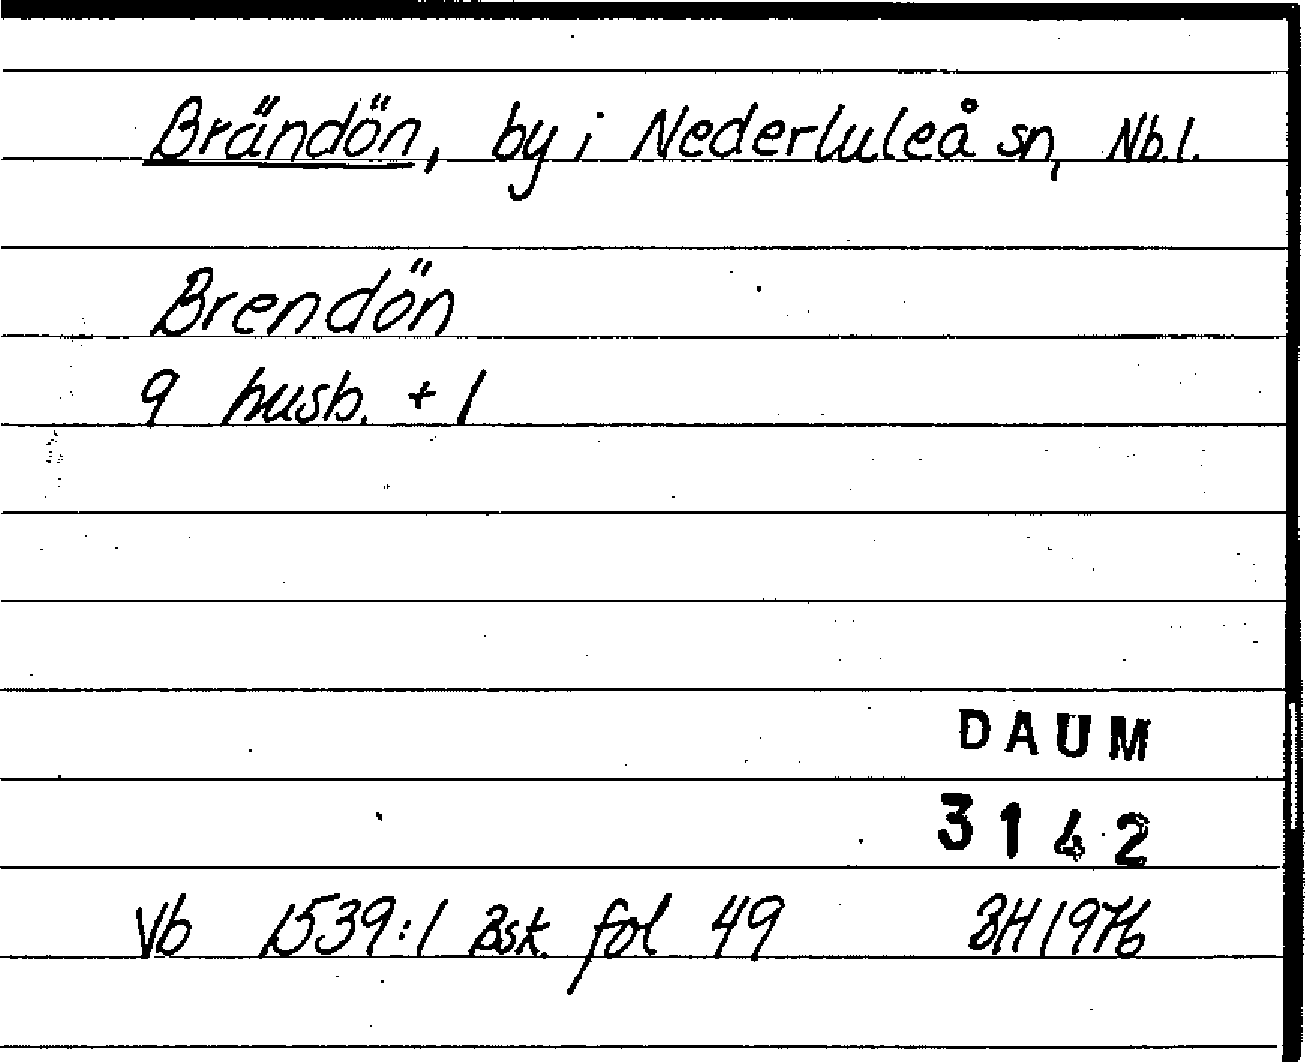 Brändön, by i Nederluleå sn, Nb.l.
Brendön
9 husb. + 1
DAUM
3142
Vb 1539:1 Bsk. fol 49 BH 1976